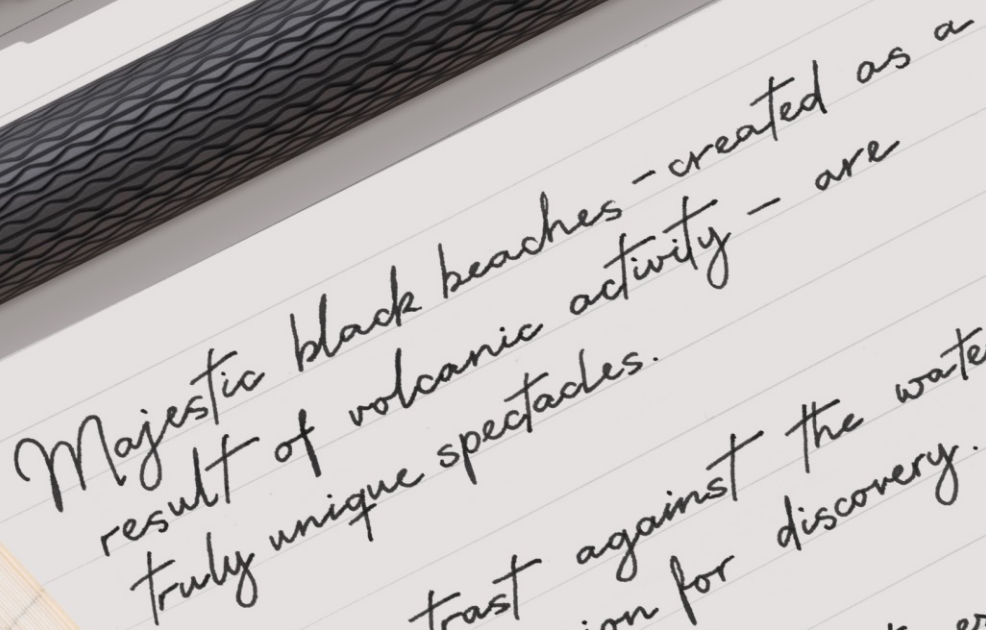 Majestic black beaches - created as a
result of volcanic activity - are
truly unique spectacles.
against the
for discovery.